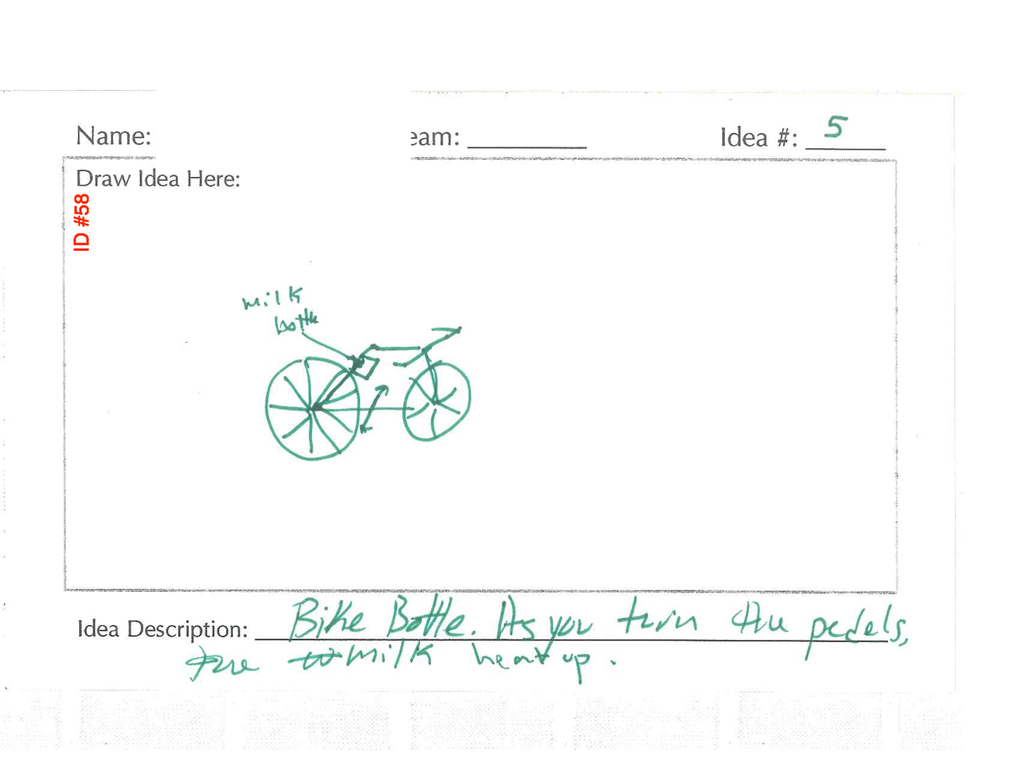 Name:
eam:
Idea #: 5
Draw Idea Here:
ID #58
milk
bottle
Idea Description: Bike Bottle. As you turn the pedels,
the milk heat up.